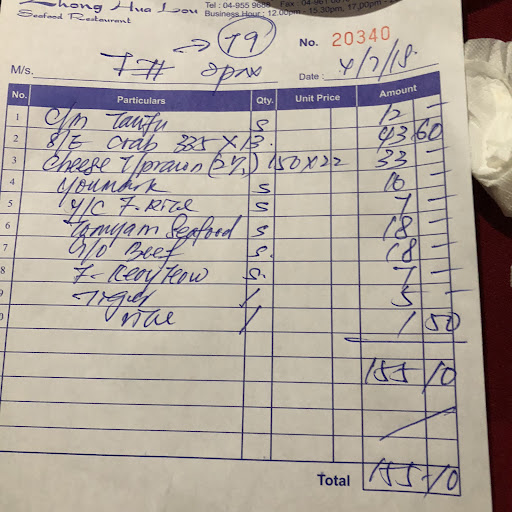 Zhong Hua Lou
Seafood Restaurant
Tel : 04-955 9688 Fax : 04-961
Business Hour : 12.00pm - 15.30pm, 17.00pm -
T9
No. 20340
M/s. 2pax
Date : 4/7/18
No. Particulars Qty. Unit Price Amount
1 C/M Taufu S 12 -
2 S/E Crab 335 X 13 43.60
3 Cheese T/prawn 150 X 22 33 -
4 S 16 -
5 Y/C F. Rice S 7 -
6 Tomyam Seafood S 18 -
7 G/O Beef S. 18 -
8 F. Keoy Teow S. 7 -
9 Tiger / 5 -
rice / 1 50
155 10
Total 155-10